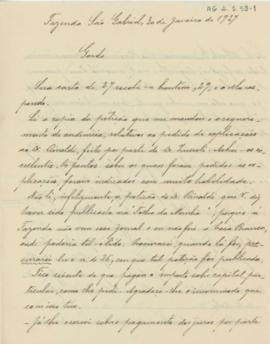 AG 4.2.58-1
Fazenda São Gabriel, 30 de Janeiro de 1927
Gordo
Sua carta de 27 recebi-a hontem, 29, e a ella res-
pondo.
Li a copia da petição que me mandou e o requeri-
mento de audiencia, relativos ao pedido de explicações
ao Dr. feito por parte de Achei-os ex-
cellentes. Os pontos sobre os quaes foram pedidas as ex-
plicações, foram indicados com muita habilidade.
Não li, infelizmente, a petição do Dr. que V. diz
haver sido publicada na Folha da Manhã, porque à
Fazenda não vem esse jornal e eu não fui á Casa Branca,
onde poderia tel-o lido. Procurarei, quando lá for,
lêr o n. de 26, em que tal petição foi publicada.
Fico sciente de que pagou o imposto sobre capital par-
ticular, como lhe pedi. Agradeço-lhe o incommodo que
com isso teve.
Já lhe escrevi sobre pagamento dos juros por parte